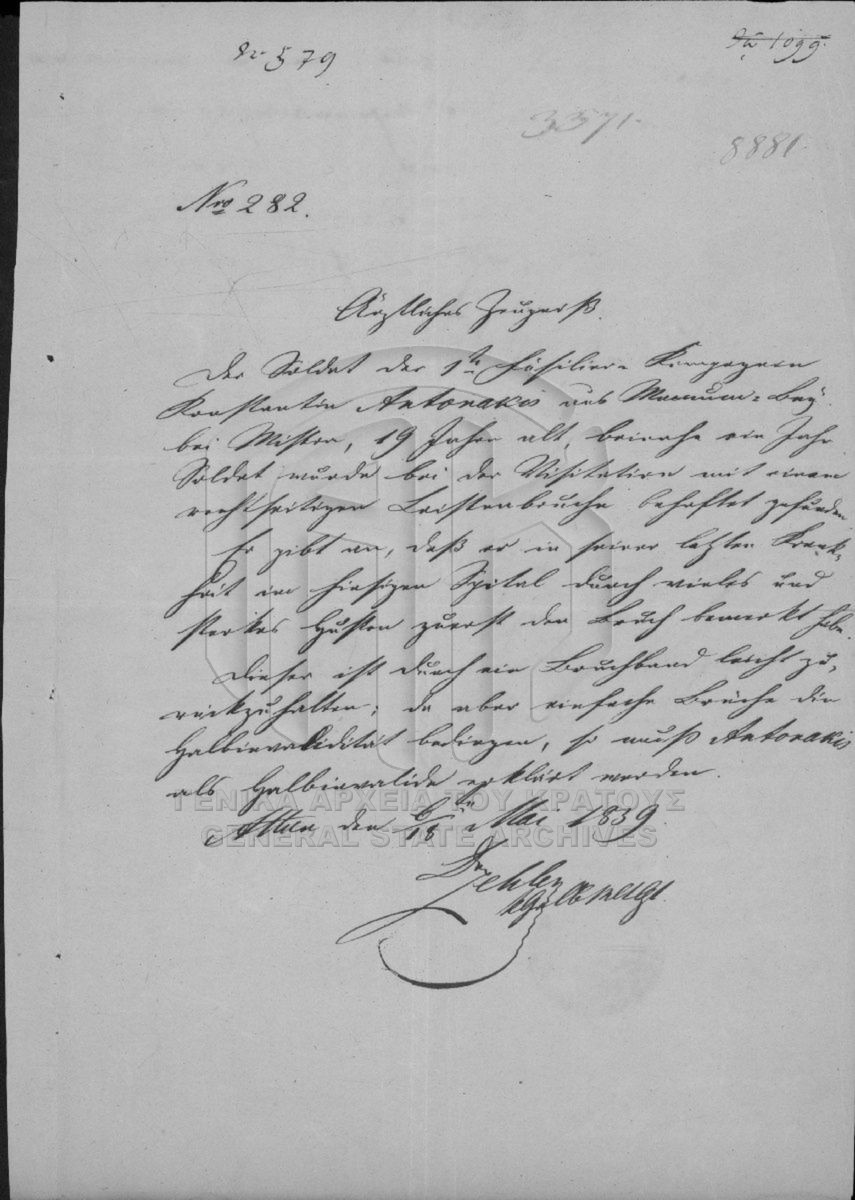 579
1099.
3571.
8881
Nro 282.
Ärztliches Zeugniß.
Der Soldat der 1ten Füsilier-Kompagnie
Konstantin Antonakis aus Mamum-Bey
bei Mistra, 19 Jahre alt, beinahe ein Jahr
Soldat wurde bei der Visitation mit einem
rechtseitigen Leistenbruche behaftet gefunden
Er gibt an, daß er in seiner letzten Krank-
heit im hiesigen Spital durch vieles und
starkes Husten zuerst den Bruch bemerkt habe.
Dieser ist durch ein Bruchband leicht zu-
rückzuhalten; da aber einfache Brüche die
Halbinvalidität bedingen, so muß Antonakis
als Halbinvalide erklärt werden.
ΓΕΝΙΚΑ ΑΡΧΕΙΑ ΤΟΥ ΚΡΑΤΟΥΣ
Athen den 6/18ten Mai 1839
GENERAL STATE ARCHIVES
Dr